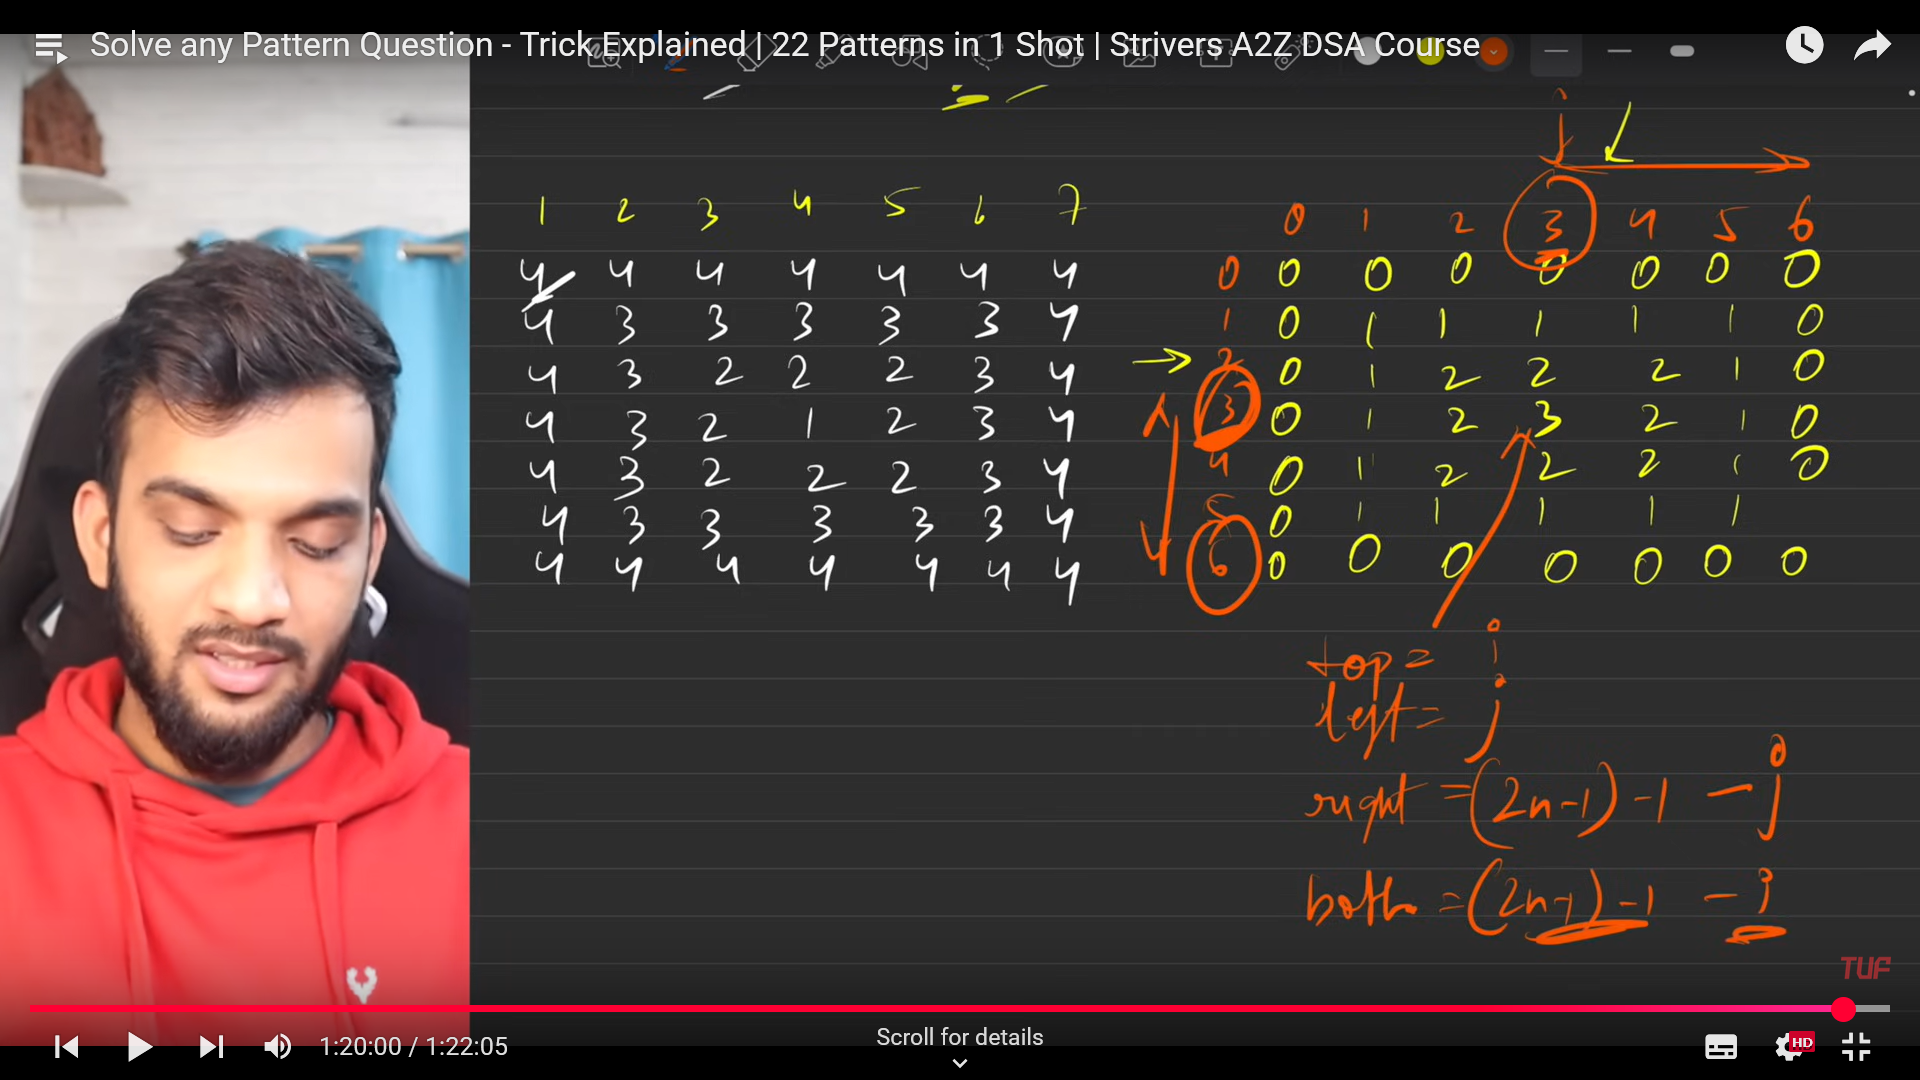 Solve any Pattern Question - Trick Explained | 22 Patterns in 1 Shot | Strivers A2Z DSA Course
1 2 3 4 5 6 7
4 4 4 4 4 4 4
4 3 3 3 3 3 4
4 3 2 2 2 3 4
4 3 2 1 2 3 4
4 3 2 2 2 3 4
4 3 3 3 3 3 4
4 4 4 4 4 4 4
j
0 1 2 3 4 5 6
0 0 0 0 0 0 0 0
1 0 1 1 1 1 1 0
2 0 1 2 2 2 1 0
3 0 1 2 3 2 1 0
4 0 1 2 2 2 1 0
5 0 1 1 1 1 1
6 0 0 0 0 0 0 0
top = i
left = j
right = (2n-1) -1 - j
both = (2n-1) -1 - i
TUF
1:20:00 / 1:22:05
Scroll for details
HD